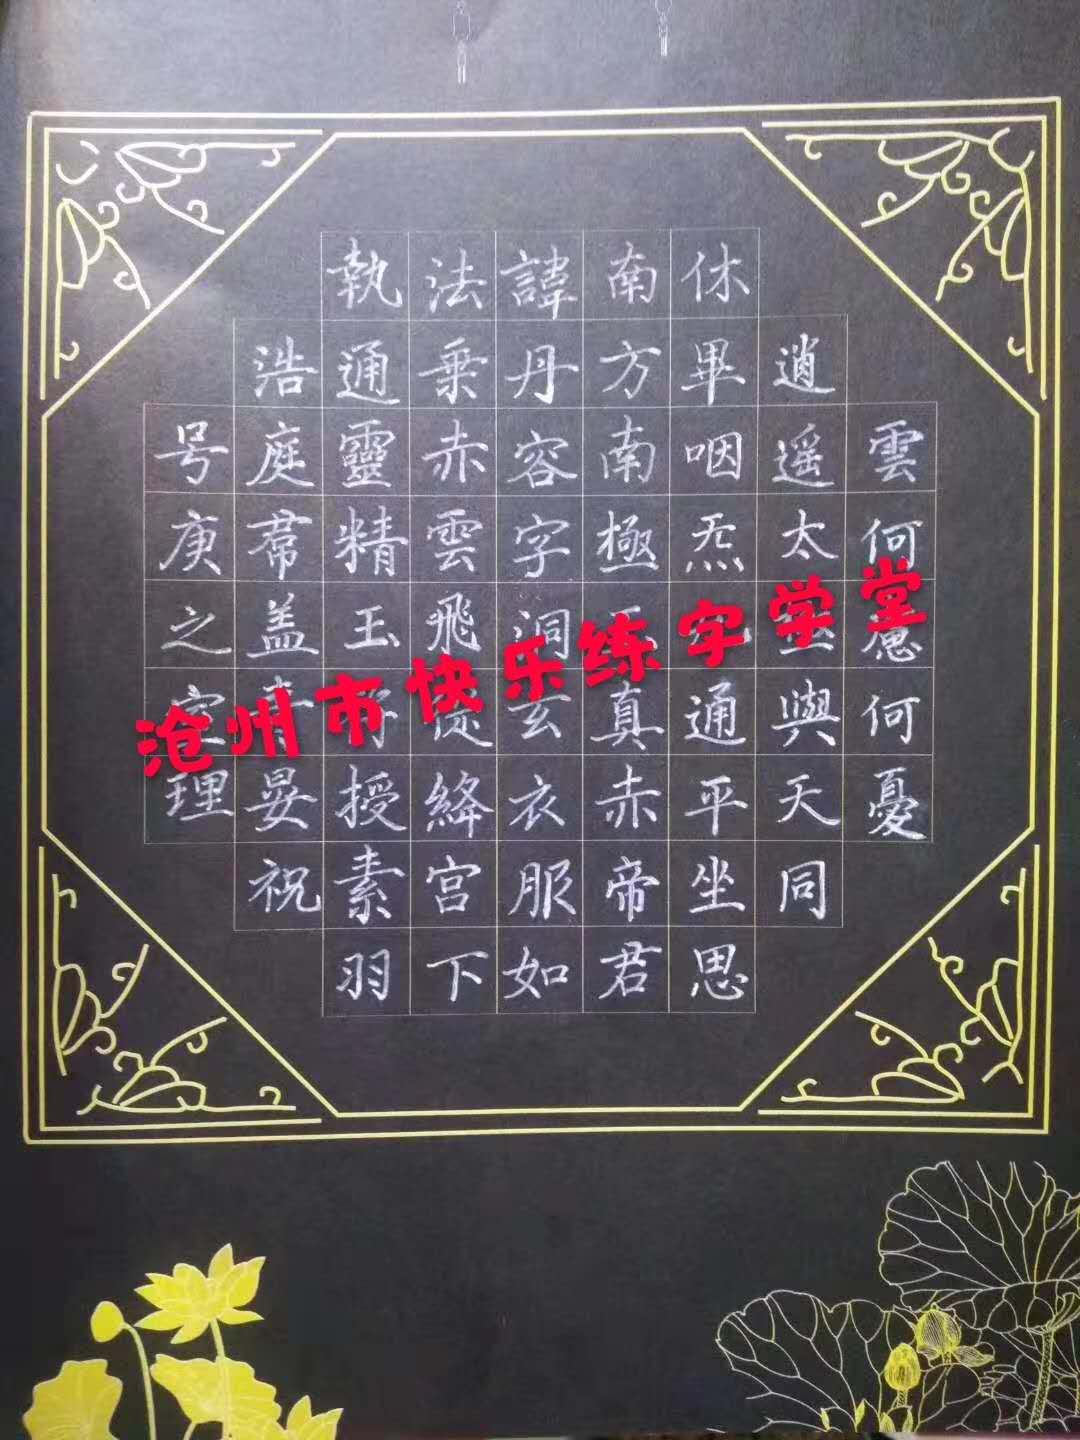 雲何慮何憂
逍遥太與天同
休畢咽炁通平坐思
南方南極真赤帝君
諱丹容字洞玄衣服如
法乗赤雲飛從絳宫下
執通靈精玉授素羽
浩庭帬盖晏祝
号庚之理
沧州市快乐练字学堂